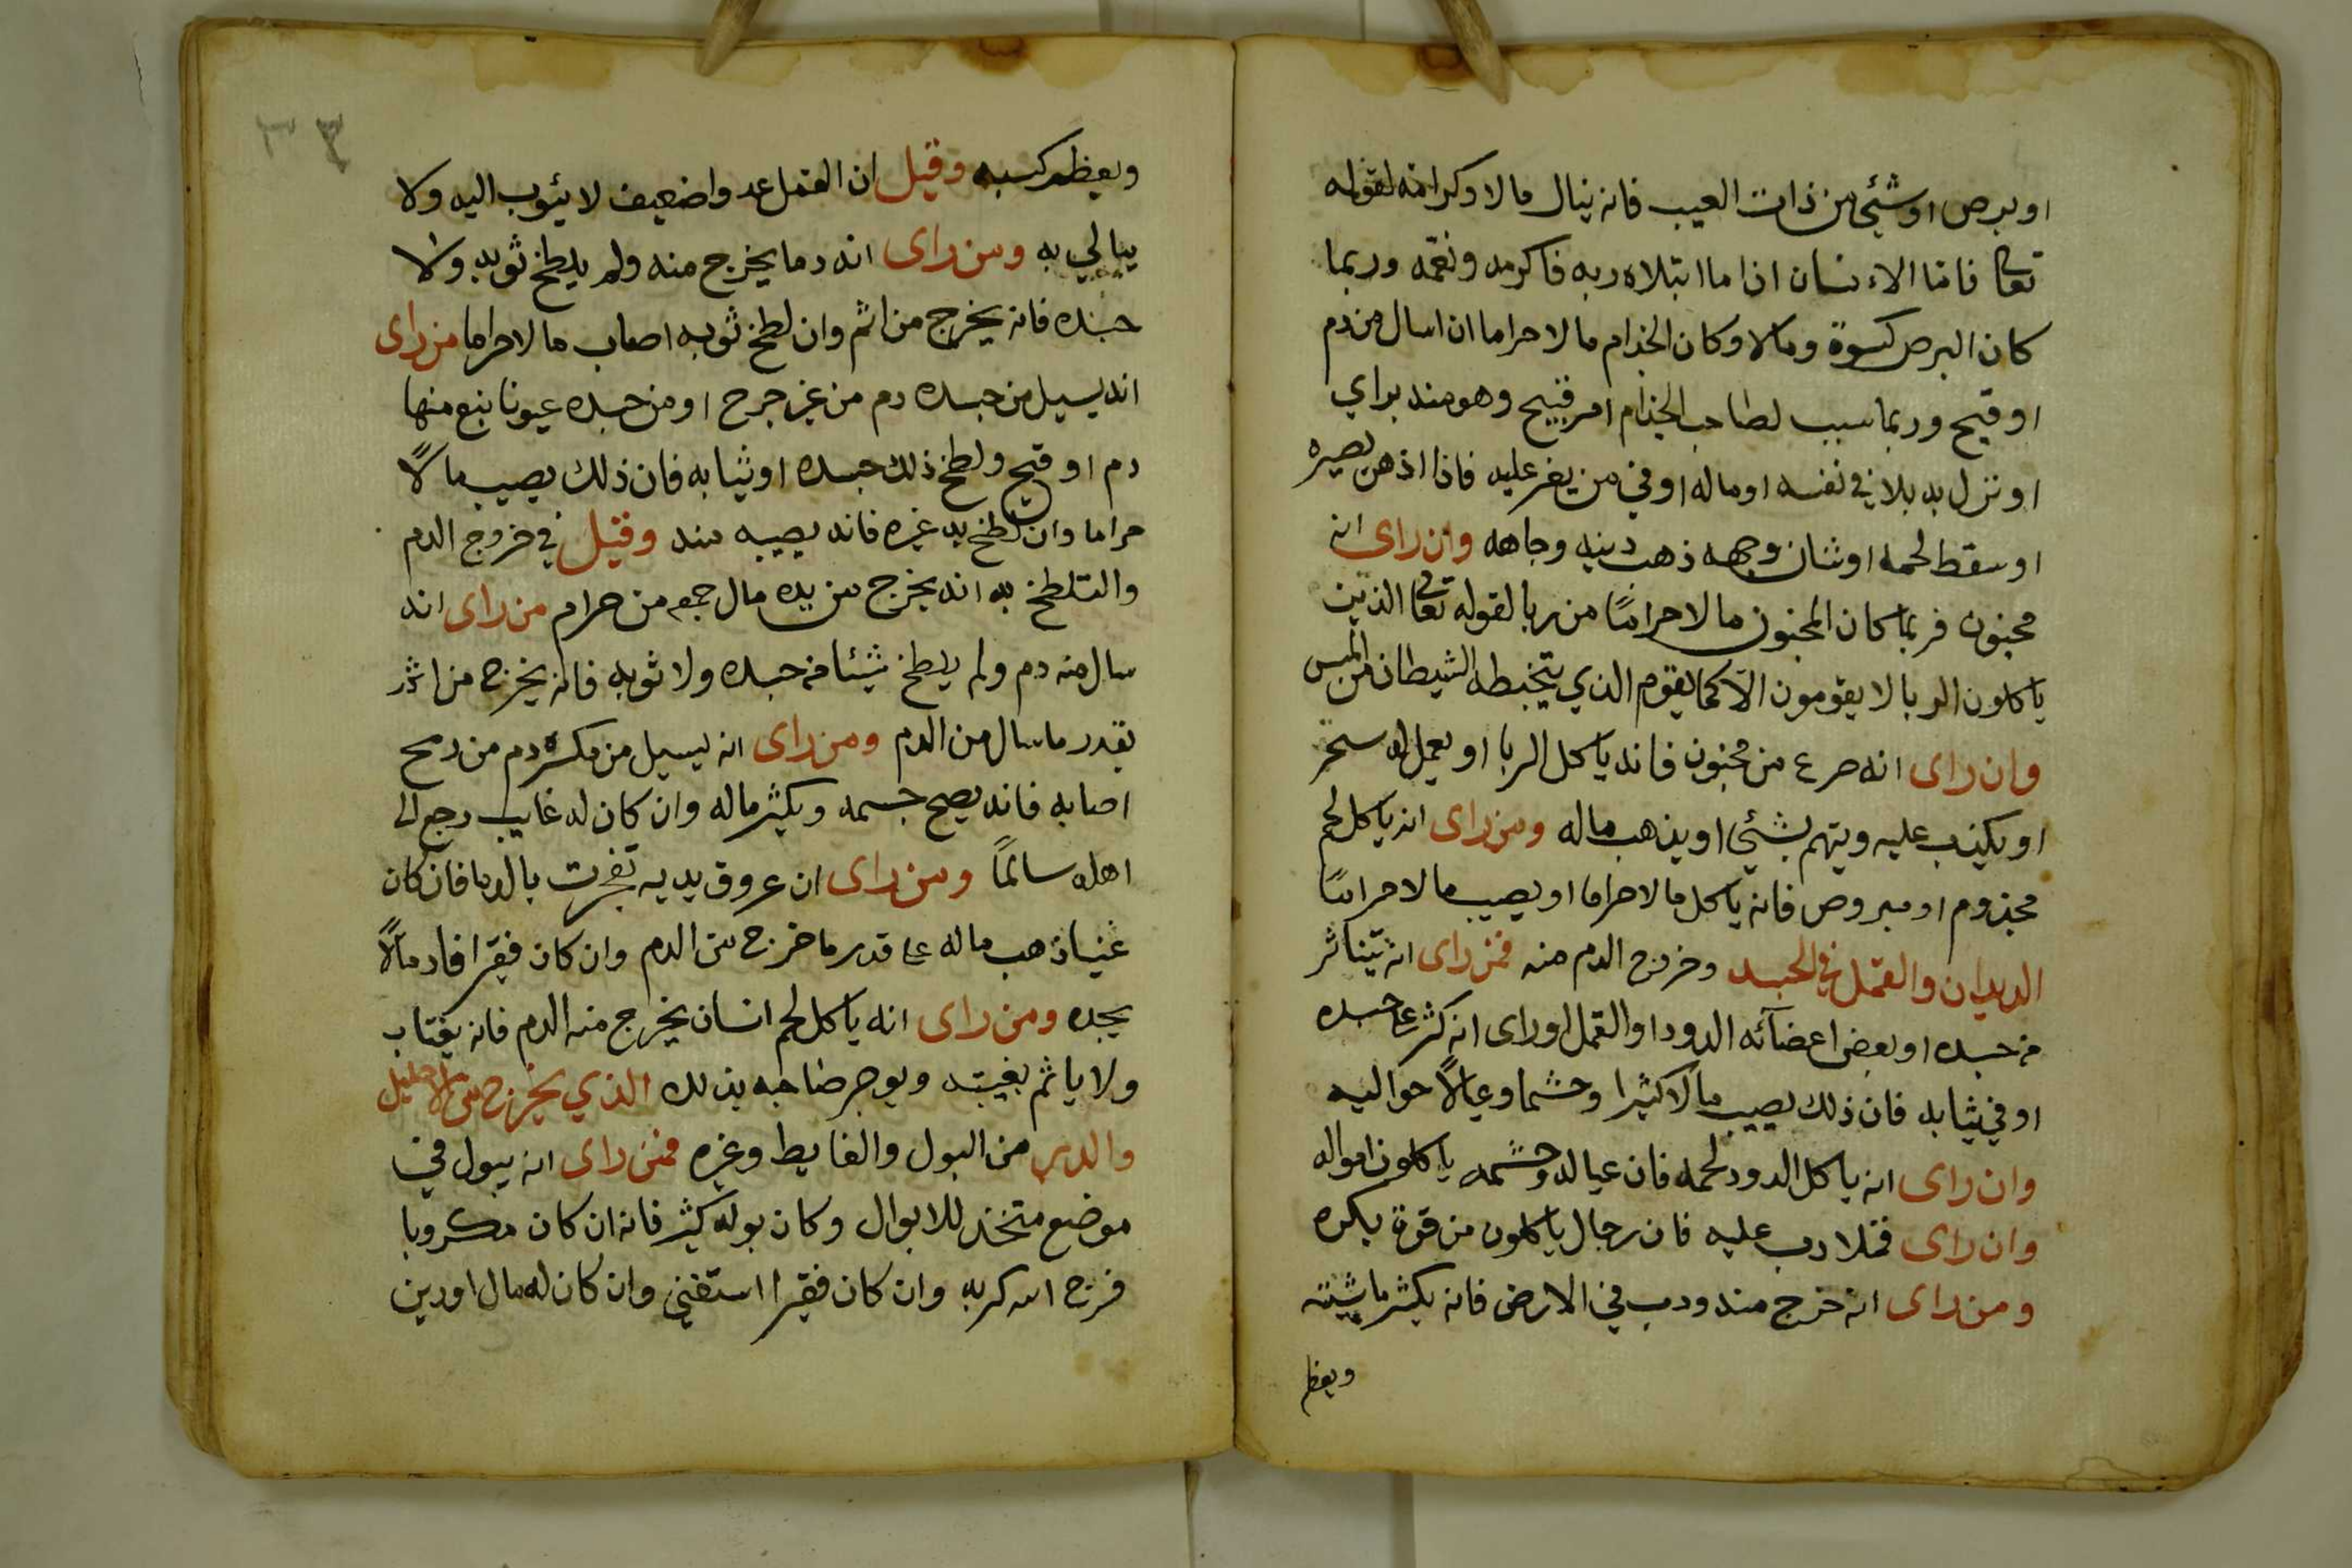 او برص او شئي من ذات العيب فانه ينال مالا وكرامة لقوله
تعالى فاما الاءنسان اذا ما ابتلاه ربه فاكرمه ونعمه وربما
كان البرص كسوة ومالا وكان الجذام مالا حراما ان اسال من دم
او قيح وربما سبب لصاحب الجذام امر قبيح وهو منه براي
او نزل به بلا في نفسه او ماله او في من يعز عليه فاذا اذهن بصيره
او سقط لحمه او شان وجهه ذهب دينه وجاهه وان راى انه
مجنون فربما كان المجنون مالا حراما من ربا لقوله تعالى الذين
ياكلون الربا لا يقومون الا كما يقوم الذي يتخبطه الشيطان من المس
وان راى انه صرع من مجنون فانه ياكل الربا او يعمل له سحر
او يكذب عليه ويتهم بشئي او يذهب ماله ومن راى انه ياكل لحم
مجذوم او مبروص فانه ياكل مالا حراما او يصيب مالا حراما
الديدان والقمل في الجسد وخروج الدم منه فمن راى انه يتناثر
من جسده او بعض اعضآئه الدود او القمل او راى انه كثر على جسده
او في ثيابه فان ذلك يصيب مالا كثيرا وحشما وعيالا حواليه
وان راى انه ياكل الدود لحمه فان عياله وحشمه ياكلون امواله
وان راى قملا دب عليه فان رجال ياكلون من قوة بكره
ومن راى انه خرج منه ودب في الارض فانه يكثر ماشيته
ويعظم
ويعظم كسبه وقيل ان القمل عدوا ضعيف لا يئوب اليه ولا
يبالي به ومن راى انه دما يخرج منه ولم يلطخ ثوبه ولا
جسده فانه يخرج من اثم وان لطخ ثوبه اصاب مالا حراما من راى
انه يسيل من جسده دم من غير جرح او من جسده عيونا ينبع منها
دم او قيح ولطخ ذلك جسده او ثيابه فان ذلك يصيب مالا
حراما وان لطخ به غيره فانه يصيبه منه وقيل في خروج الدم
والتلطخ به انه يخرج من يده مال جمع من حرام من راى انه
سال منه دم ولم يلطخ شيئا من جسده ولا ثوبه فانه يخرج من اثم
بقدر ما سال من الدم ومن راى انه يسيل من مكسره دم من رمح
اصابه فانه يصح جسمه ويكثر ماله وان كان له غايب رجع الى
اهله سالما ومن راى ان عروق يديه تفجرت بالدما فان كان
غنيا ذهب ماله على قدر ما خرج من الدم وان كان فقيرا افاد مالا
يجده ومن راى انه ياكل لحم انسان يخرج منه الدم فانه يغتاب
ولا ياثم بغيبته ويوجر صاحبه بذلك الذي يخرج من الاحليل
والدبر من البول والغايط وغيره فمن راى انه يبول في
موضع متخذ للابوال وكان بوله كثير فانه ان كان مكروبا
فرج الله كربه وان كان فقيرا استغني وان كان له مال اودين